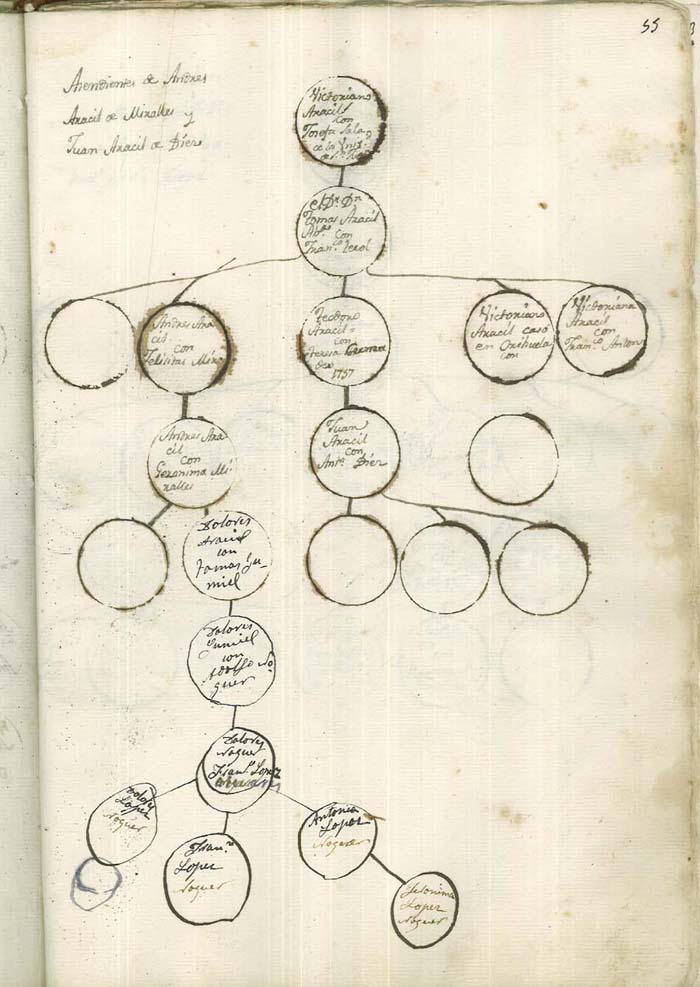 55
Asendientes de Andres
Aracil de Miralles y
Juan Aracil de Dier
Victoriano
Aracil
con
Josefa Sala
de la
el Dr. Dn.
Tomas Aracil
Abº
con
Franca
Andres Ara
cil
con
Felisitas Mira
Teodoro
Aracil
con
Teresa
1757
Victoriano
Aracil caso
en Orihuela
con
Victoriana
Aracil
con
Franco Anton
Andres Ara
cil
con
Geronima Mi-
ralles
Juan
Aracil
con
Anta Dier
Dolores
Aracil
con
Tomas Gu-
miel
Dolores
Gumiel
con
Adolfo No-
guer
Dolores
Noguer
Franco Lopez
Dolores
Lopez
Noguer
Franco
Lopez
Noguer
Antonia
Lopez
Noguer
Jeronima
Lopez
Noguer